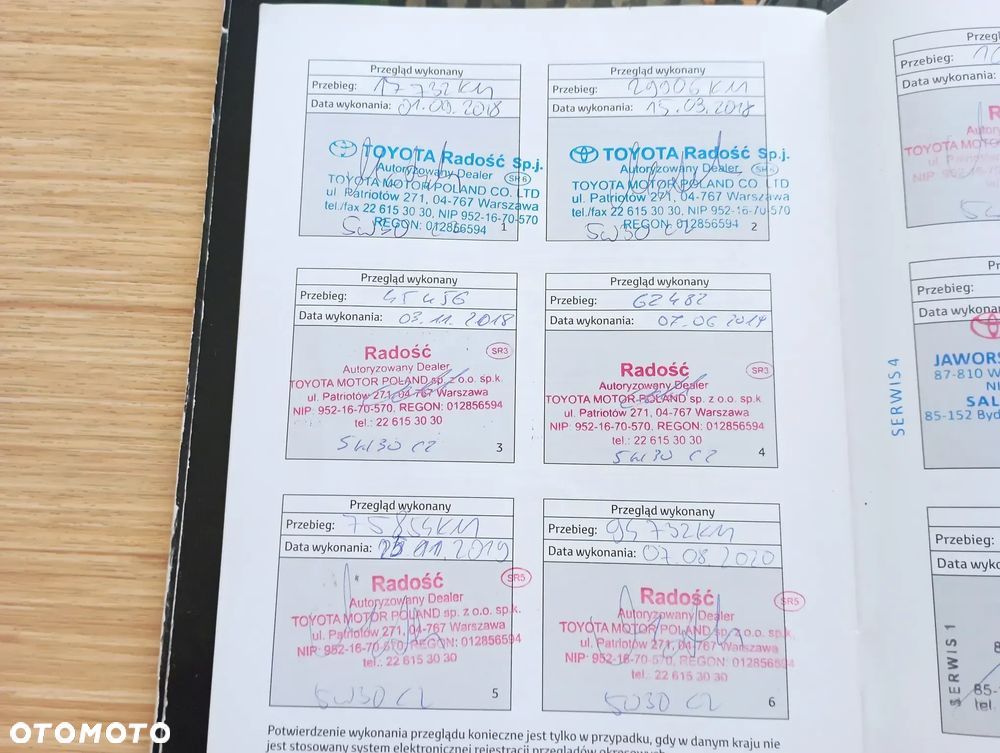 Przegląd wykonany
Przebieg: 17 732 KM
Data wykonania: 01.09.2018
TOYOTA Radość Sp.j.
Autoryzowany Dealer
SR6
TOYOTA MOTOR POLAND CO. LTD
ul. Patriotów 271, 04-767 Warszawa
tel./fax 22 615 30 30, NIP 952-16-70-570
REGON: 012856594
5W30 CZ
1
Przegląd wykonany
Przebieg: 29906 KM
Data wykonania: 15.03.2018
TOYOTA Radość Sp.j.
Autoryzowany Dealer
SR6
TOYOTA MOTOR POLAND CO. LTD
ul. Patriotów 271, 04-767 Warszawa
tel./fax 22 615 30 30, NIP 952-16-70-570
REGON: 012856594
5W30 CZ
2
Przegląd wykonany
Przebieg: 45456
Data wykonania: 03.11.2018
Radość
SR3
Autoryzowany Dealer
TOYOTA MOTOR POLAND sp. z o.o. sp.k.
ul. Patriotów 271, 04-767 Warszawa
NIP: 952-16-70-570, REGON: 012856594
tel.: 22 615 30 30
5W30 CZ
3
Przegląd wykonany
Przebieg: 62482
Data wykonania: 07.06 2019
Radość
SR3
Autoryzowany Dealer
TOYOTA MOTOR POLAND sp. z o.o. sp.k
ul. Patriotów 271, 04-767 Warszawa
NIP: 952-16-70-570, REGON: 012856594
tel.: 22 615 30 30
5W30 CZ
4
Przegląd wykonany
Przebieg: 75854KM
Data wykonania: 11.2019
Radość
SR5
Autoryzowany Dealer
TOYOTA MOTOR POLAND sp. z o.o. sp.k.
ul. Patriotów 271, 04-767 Warszawa
NIP: 952-16-70-570, REGON: 012856594
tel.: 22 615 30 30
5W30 CZ
5
Przegląd wykonany
Przebieg: 94732KM
Data wykonania: 07.08 2020
Radość
SR5
Autoryzowany Dealer
TOYOTA MOTOR POLAND sp. z o.o. sp.k.
ul. Patriotów 271, 04-767 Warszawa
NIP: 952-16-70-570, REGON: 012856594
tel.: 22 615 30 30
5W30 CZ
6
Potwierdzenie wykonania przeglądu konieczne jest tylko w przypadku, gdy w danym kraju nie
jest stosowany system elektronicznej rejestracji przeglądów okresowych
Przebieg:
Data wykonania:
TOYOTA MOTO
Przebieg:
Data wykonan
SERWIS 4
JAWORS
87-810 W
NI
SAL
85-152 Byd
Przebieg:
Data wyko
SERWIS 1
85-
tel.
OTOMOTO